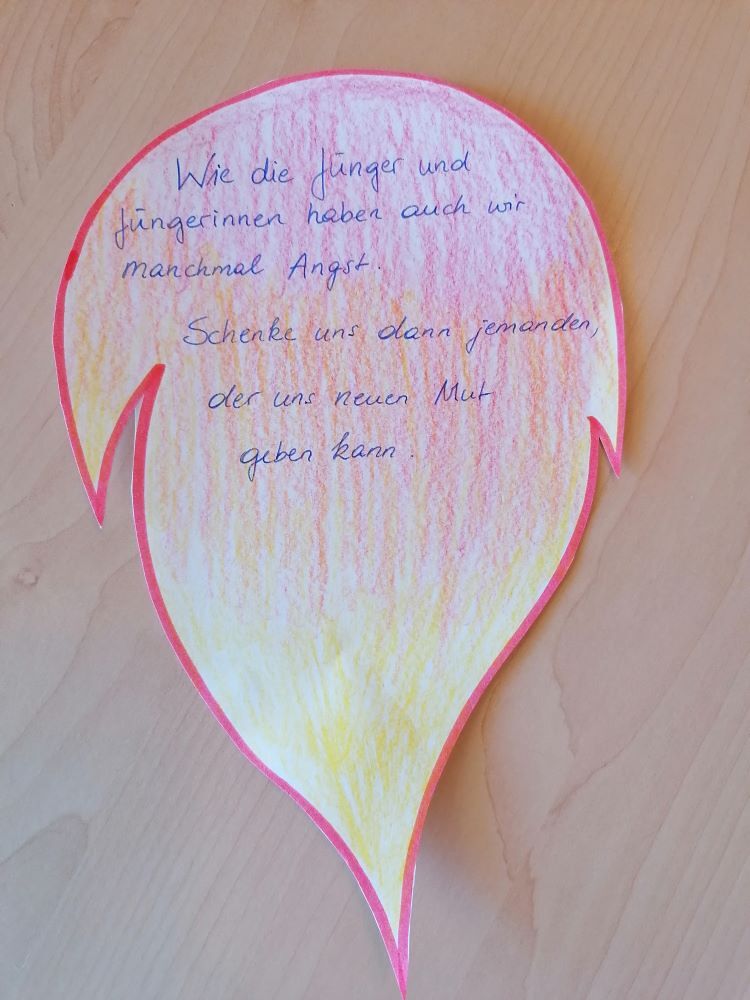 Wie die Jünger und
Jüngerinnen haben auch wir
manchmal Angst.
Schenke uns dann jemanden,
der uns neuen Mut
geben kann.